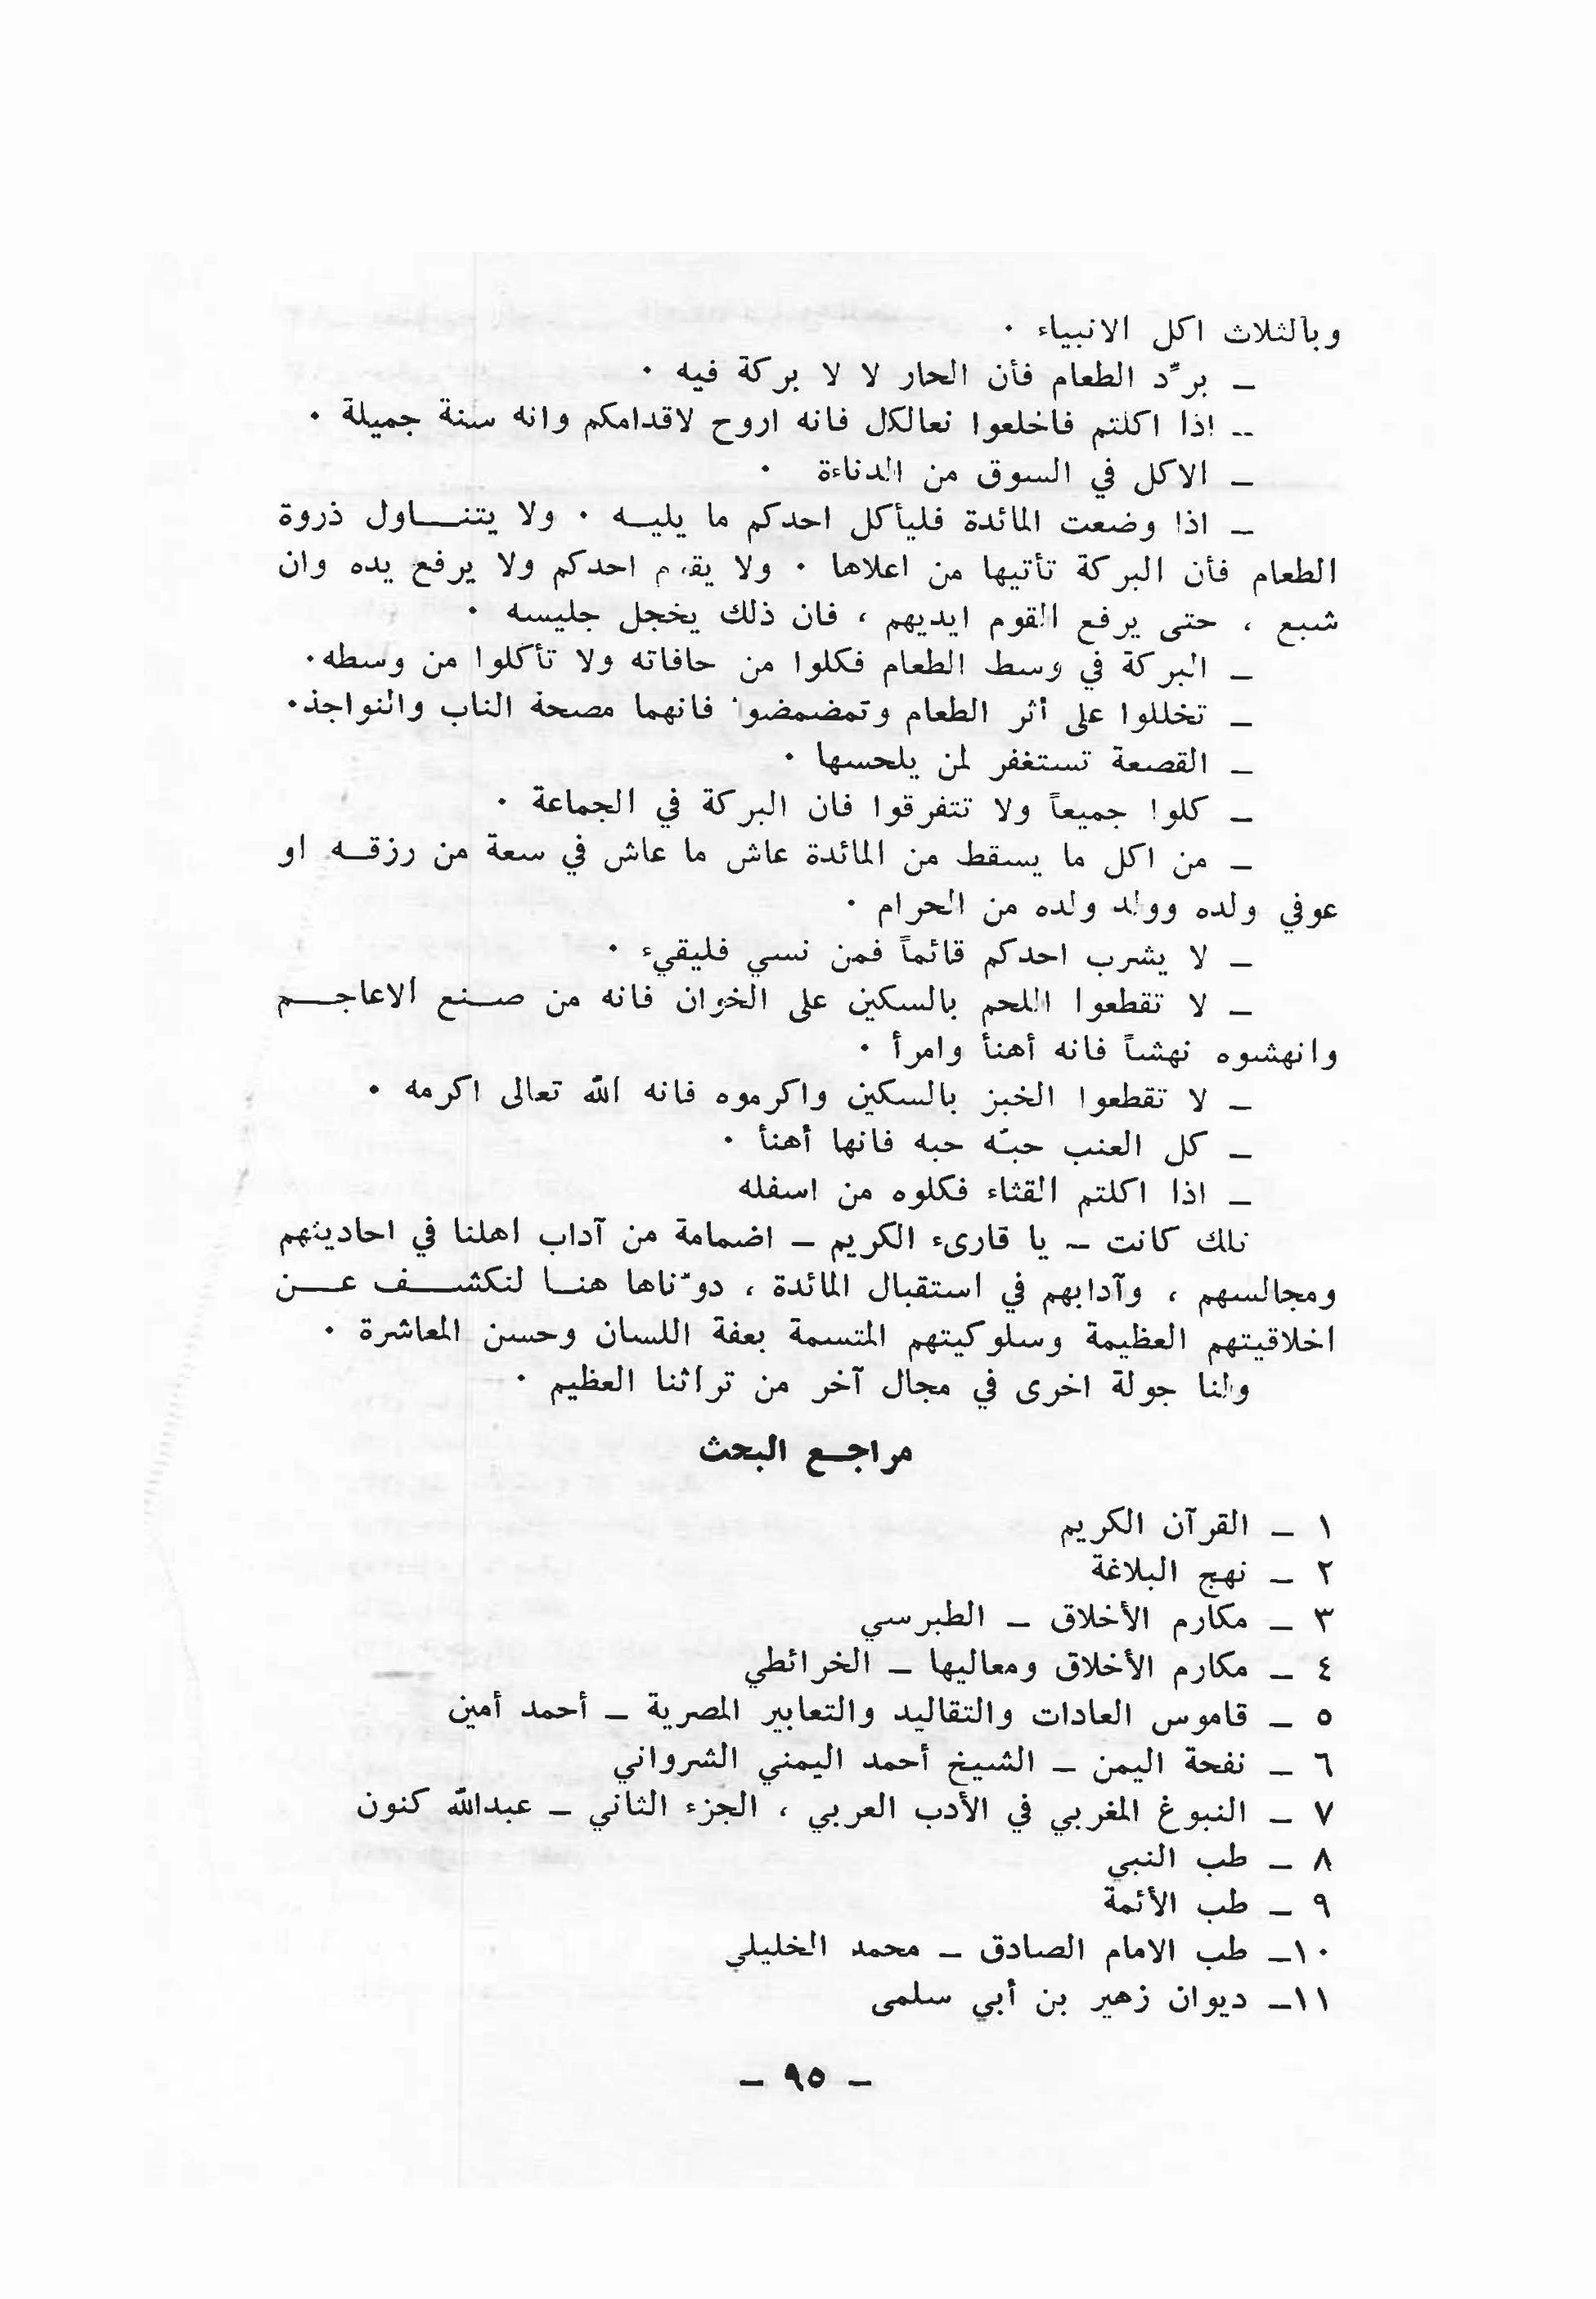 وبالثلاث اكل الانبياء ٠
ـ برّد الطعام فأن الحار لا لا بركة فيه ٠
ـ اذا اكلتم فاخلعوا نعالكل فانه اروح لاقدامكم وانه سنة جميلة ٠
ـ الاكل في السوق من الدناءة ٠
ـ اذا وضعت المائدة فليأكل احدكم ما يليـه ٠ ولا يتنـــاول ذروة
الطعام فأن البركة تأتيها من اعلاها ٠ ولا يقوم احدكم ولا يرفع يده وان
شبع ، حتى يرفع القوم ايديهم ، فان ذلك يخجل جليسه ٠
ـ البركة في وسط الطعام فكلوا من حافاته ولا تأكلوا من وسطه٠
ـ تخللوا على أثر الطعام وتمضمضوا فانهما مصحة الناب والنواجذ٠
ـ القصعة تستغفر لمن يلحسها ٠
ـ كلوا جميعاً ولا تتفرقوا فان البركة في الجماعة ٠
ـ من اكل ما يسقط من المائدة عاش ما عاش في سعة من رزقـه او
عوفي ولده وولد ولده من الحرام ٠
ـ لا يشرب احدكم قائماً فمن نسي فليقيء ٠
ـ لا تقطعوا اللحم بالسكين على الخوان فانه من صــنع الاعاجـــم
وانهشوه نهشاً فانه أهنأ وامرأ ٠
ـ لا تقطعوا الخبز بالسكين واكرموه فانه الله تعالى اكرمه ٠
ـ كل العنب حبّه حبه فانها أهنأ ٠
ـ اذا اكلتم القثاء فكلوه من اسفله
تلك كانت ـ يا قارىء الكريم ـ اضمامة من آداب اهلنا في احاديثهم
ومجالسهم ، وآدابهم في استقبال المائدة ، دوّناها هنـا لنكشـــف عـــن
اخلاقيتهم العظيمة وسلوكيتهم المتسمة بعفة اللسان وحسن المعاشرة ٠
ولنا جولة اخرى في مجال آخر من تراثنا العظيم ٠
مراجـع البحث
١ ـ القرآن الكريم
٢ ـ نهج البلاغة
٣ ـ مكارم الأخلاق ـ الطبرسي
٤ ـ مكارم الأخلاق ومعاليها ـ الخرائطي
٥ ـ قاموس العادات والتقاليد والتعابير المصرية ـ أحمد أمين
٦ ـ نفحة اليمن ـ الشيخ أحمد اليمني الشرواني
٧ ـ النبوغ المغربي في الأدب العربي ، الجزء الثاني ـ عبدالله كنون
٨ ـ طب النبي
٩ ـ طب الأئمة
١٠ـ طب الامام الصادق ـ محمد الخليلي
١١ـ ديوان زهير بن أبي سلمى
ـ ٩٥ ـ